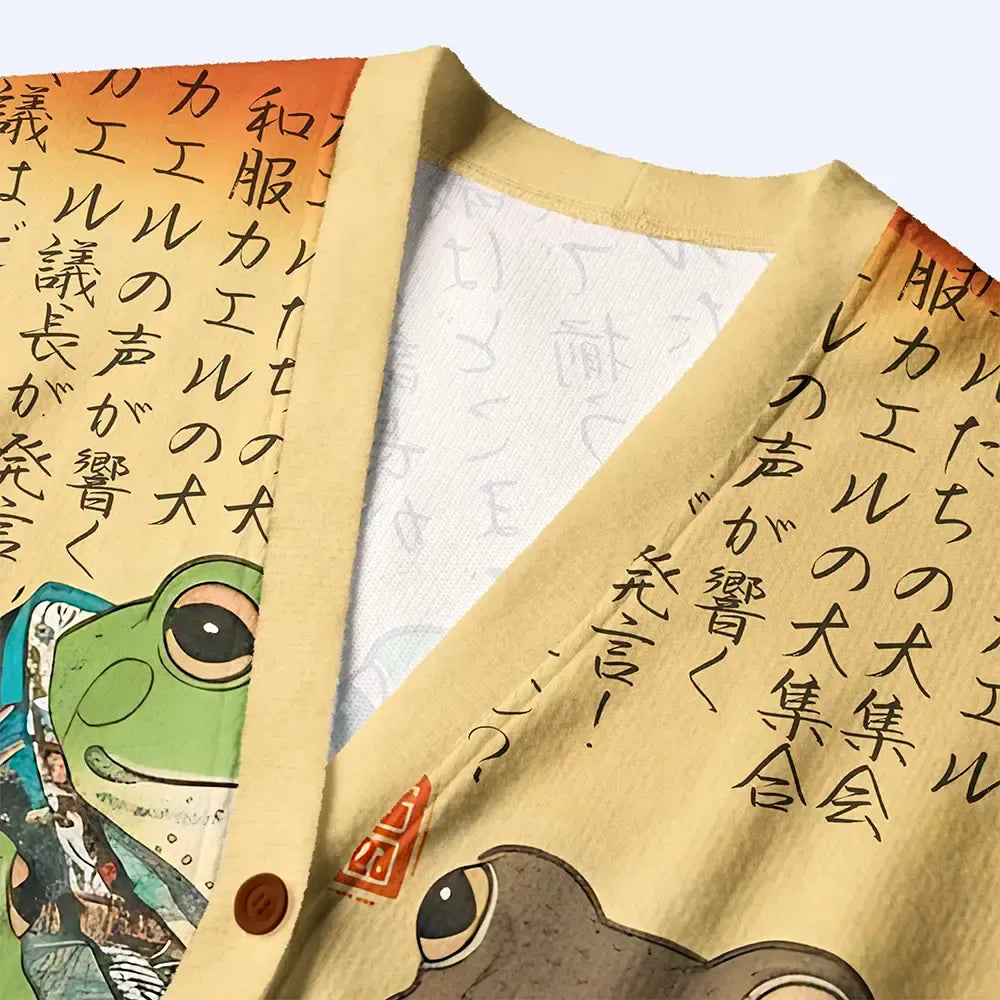 エル
ルたちの大集会
服カエルの大集合
ルの声が響く
発言!
?
ルたちの大
和服カエルの大
カエルの声が響く
カエル議長が発言
議はど